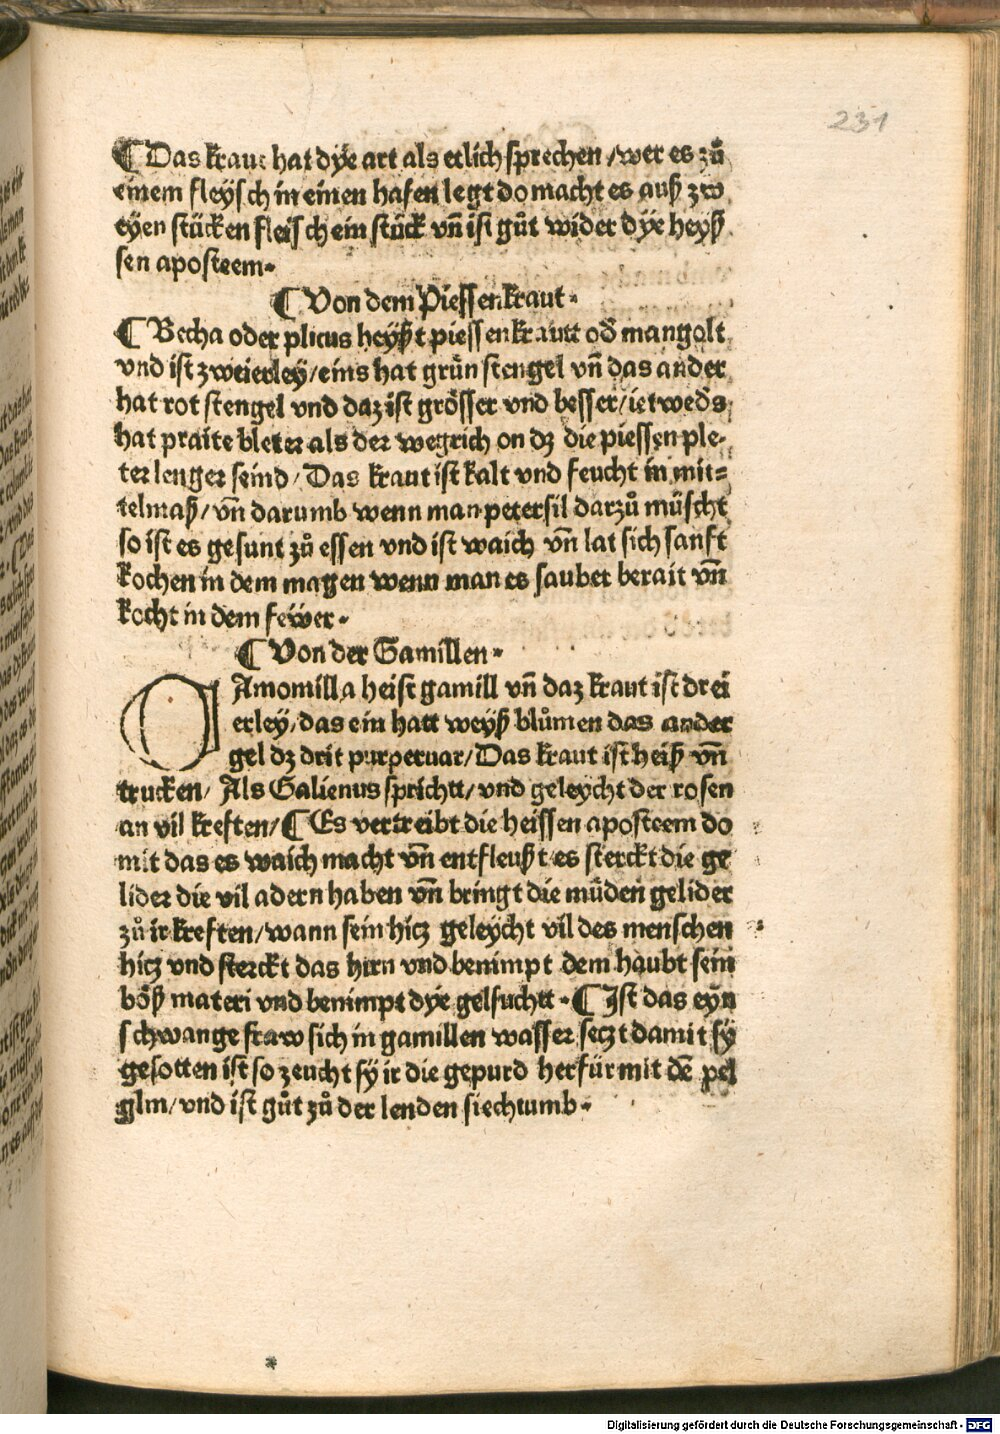 231
¶ Das kraut hat dÿe art als etlich sprechen / wer es zů
einem fleysch in einen hafen legt do macht es auß zw
eyen stücken fleisch ein stück vn̄ ist gůt wider dÿe heyß
sen aposteem·
¶ Von dem Piessenkraut·
¶ Becha oder plicus heyßt piessenkrautt od̄ mangolt
vnd ist zweierley / eins hat grün stengel vn̄ das ander
hat rot stengel vnd daz ist grösser vnd besser / ietweds
hat praite bleter als der wegrich on dz die piessen ple-
ter lenger seind / Das kraut ist kalt vnd feucht in mit=
telmaß / vn̄ darumb wenn man petersil darzů müscht
so ist es gesunt zů essen vnd ist waich vn̄ lat sich sanft
kochen in dem magen wenn man es sauber berait vn̄
kocht in dem feẅer·
¶ Von der Gamillen·
Amomilla heist gamill vn̄ daz kraut ist drei
erley / das ein hatt weyß blůmen das ander
gel dz drit purperuar / Das kraut ist heiß vn̄
trucken / Als Galienus sprichtt / vnd geleycht der rosen
an vil kreften / ¶ Es vertreibt die heissen aposteem do
mit das es waich macht vn̄ entfleußt es sterckt die ge
lider die vil adern haben vn̄ bringt die müden gelider
zů ir kreften / wann sein hicz geleycht vil des menschen
hicz vnd sterckt das hirn vnd benimpt dem haubt sein
böß materi vnd benimpt dÿe gelsuchtt· ¶ Ist das eyn
schwange fraw sich in gamillen wasser seczt damit sÿ
gesotten ist so zeucht sÿ ir die gepurd herfür mit dē pel
glin / vnd ist gůt zů der lenden siechtumb·
Digitalisierung gefördert durch die Deutsche Forschungsgemeinschaft - DFG